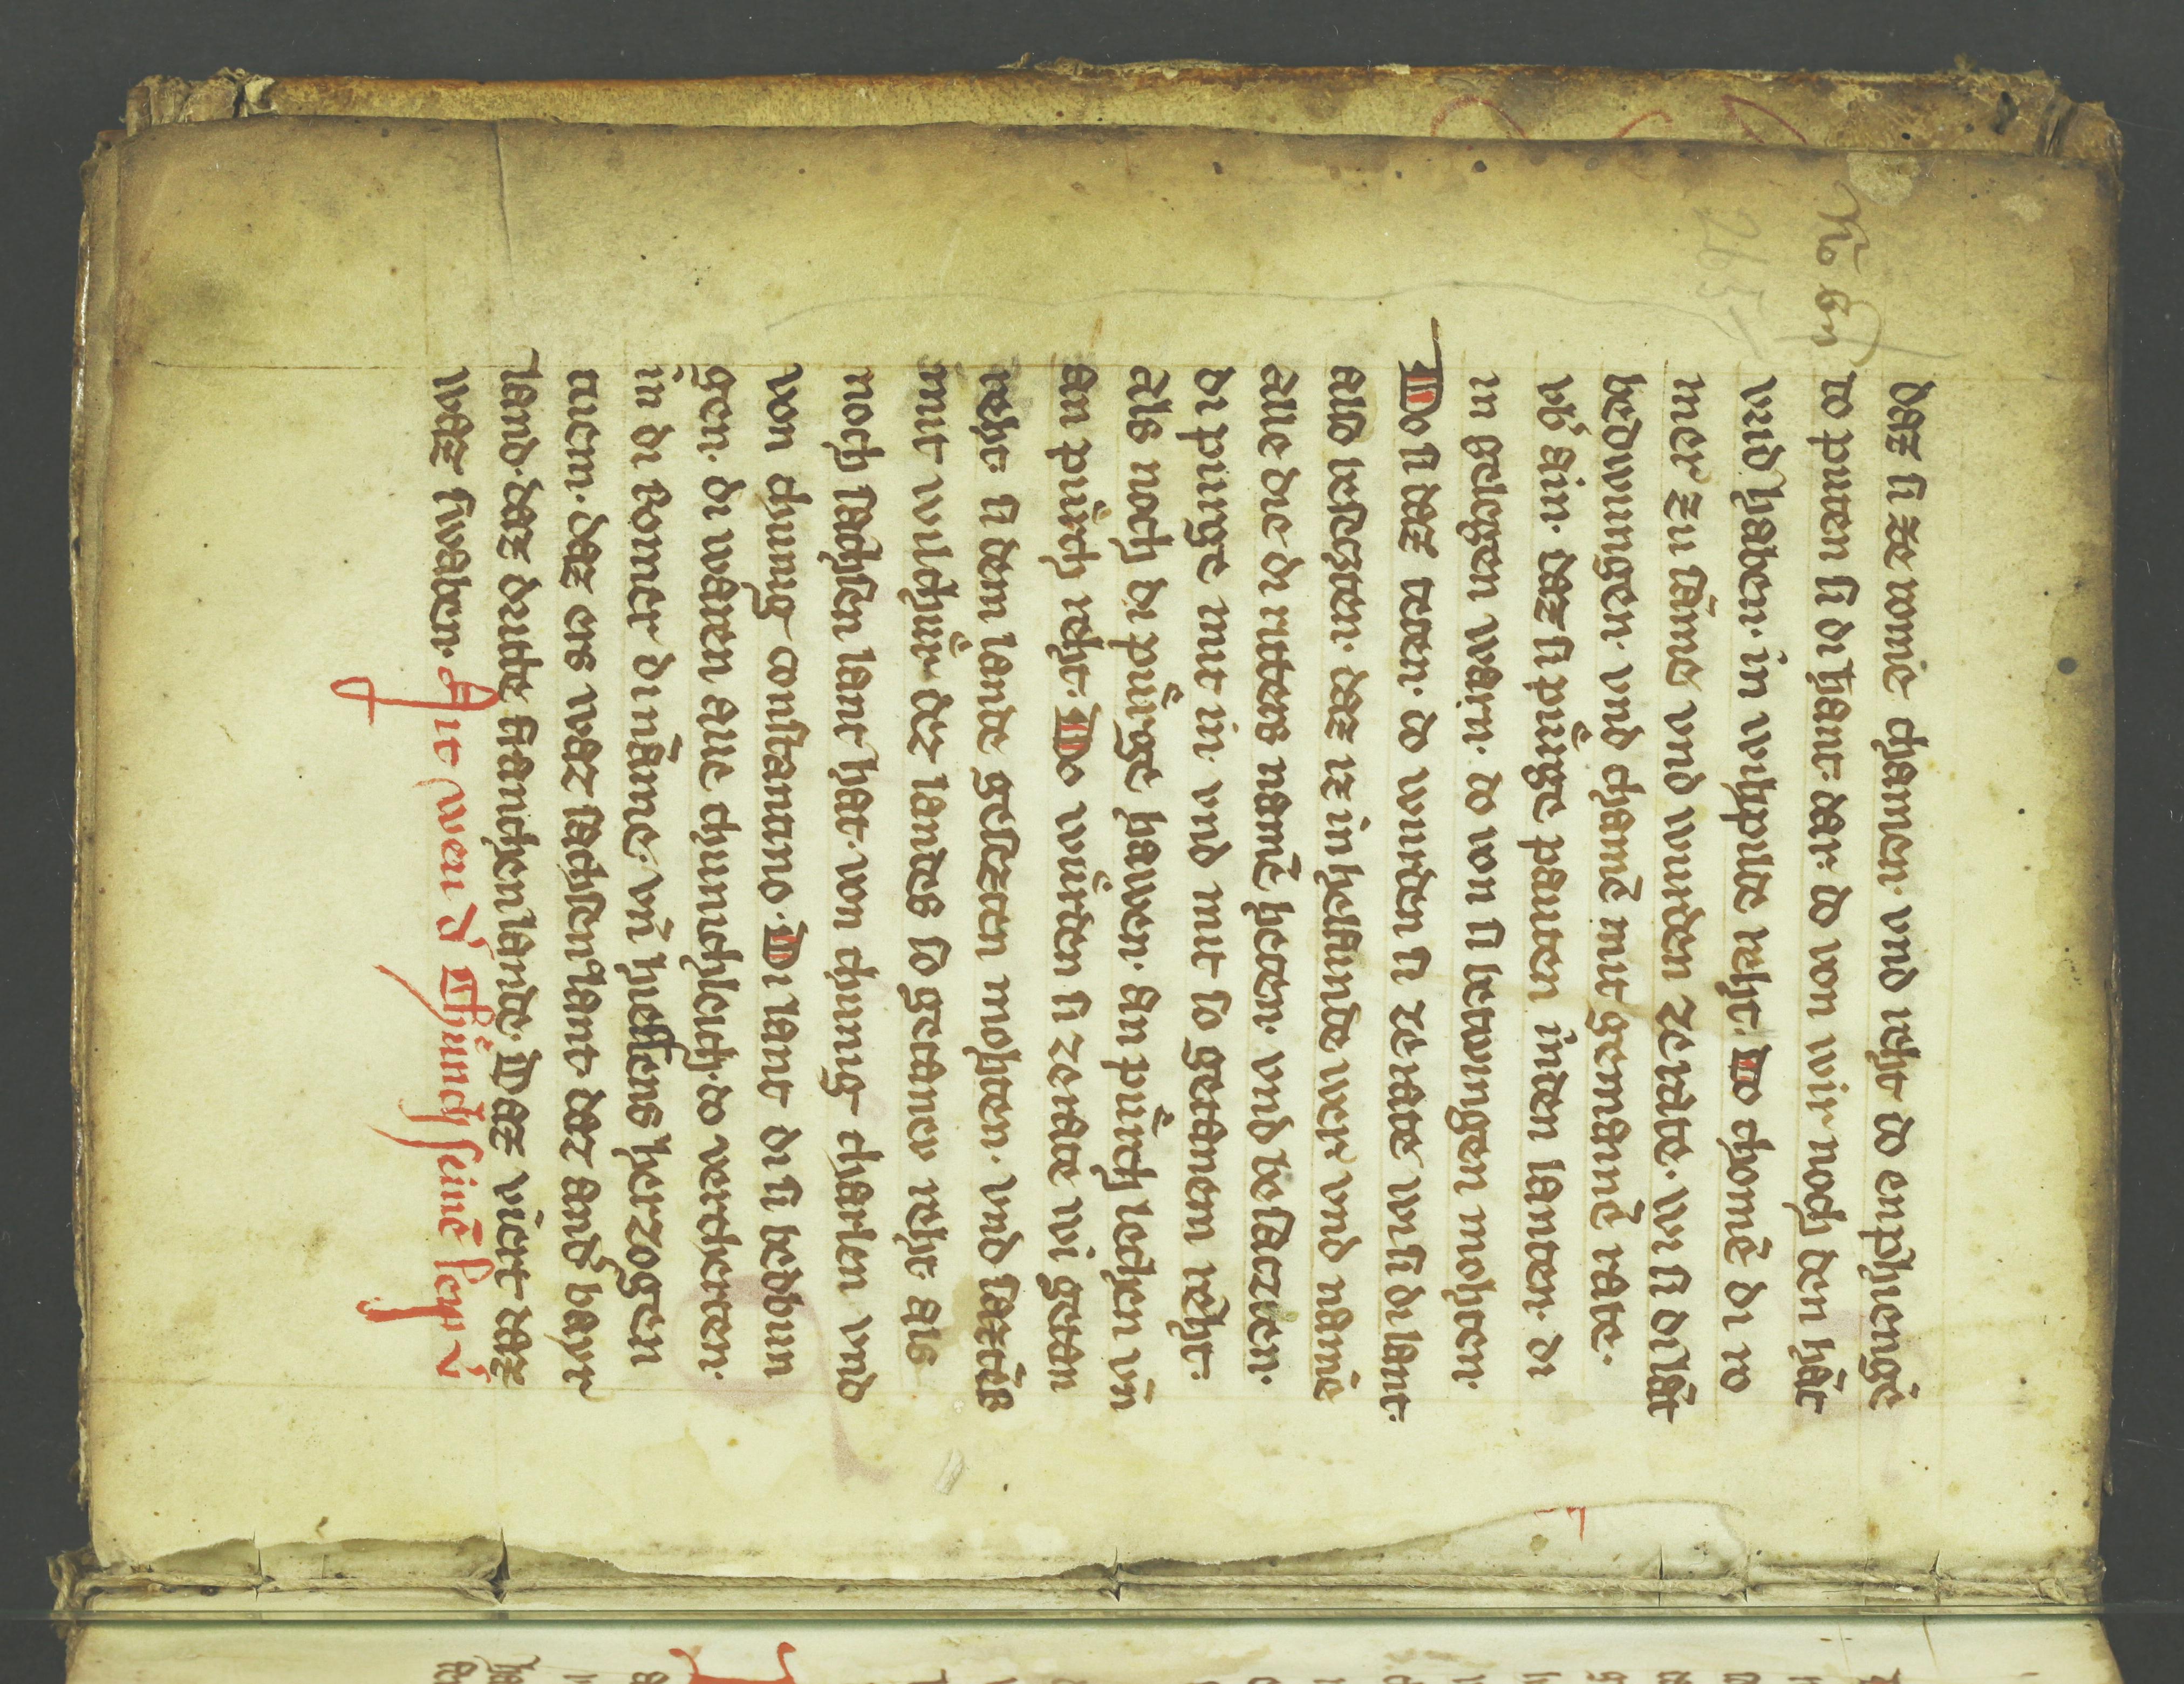 daz si ze romē chamen. vnd reht do enphiengē
ro puten si di hant dar. do von wir noch den hāt
vrid haben. in wihpilde reht. Do chomē di ro
mer zu sāmē vnd wurden ze rate. wi si di lāt
bedwungen. vnd chamē mit gemainē rate.
vb᷑ ain. daz si pürge pauten in den lanten. di
in gelegen warn. do von si betwingen mohten.
Do si daz teten. do wurden si ze rate wi si di lant
also besetzten. daz iz in besaunde wer vnd namē
alle die di ritters namē heten. vnd besaczten
di purge mit in. vnd mit so getanem reht.
als noch di pürge haben. an pürch lechen vn̄
an pürch reht. Do würden si ze rate wi getan
reht si dem lande geseczen mohten. vnd sazten
mit wilchür dez landes so getanev reht als
noch sachsen lant hat. von chunig charlen vnd
von chunig constantino. Di lant di si bedwun
gen. di waren alle chunichleich. do vercherten.
in di romer di nāme. vn̄ hiessens herzogen
tuem. daz ers waz sachsen lant daz and᷑ bayr
land. daz dritte franchen lande. Daz viert daz
waz swaben. Hie wen d᷑ Chünch seinē lep v
265